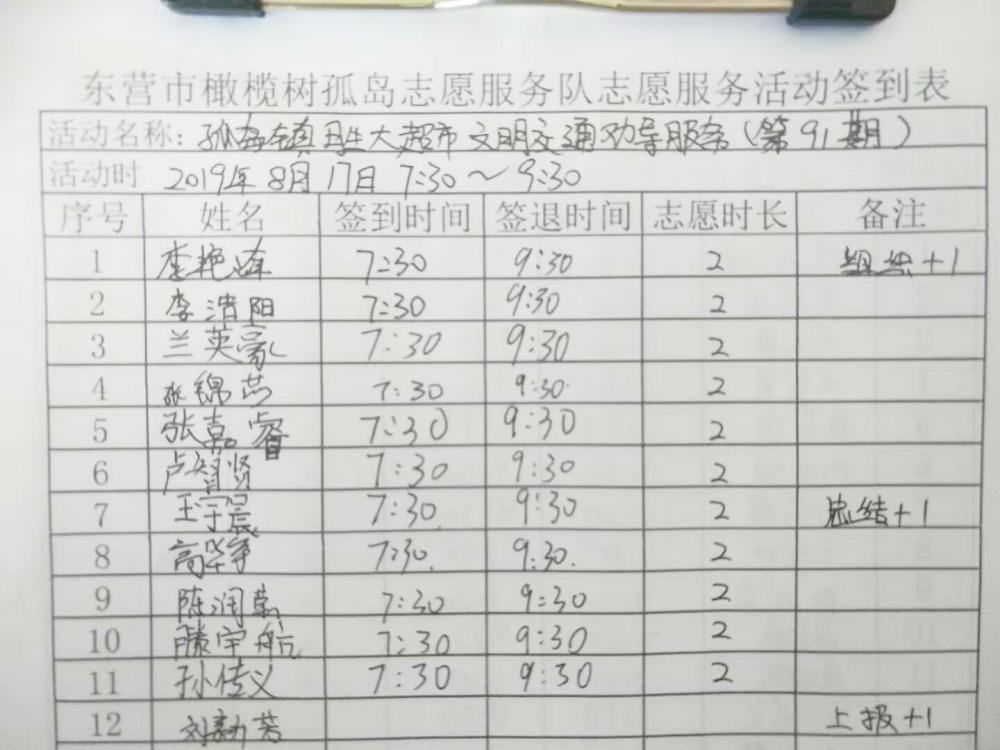 东营市橄榄树孤岛志愿服务队志愿服务活动签到表
活动名称：孤岛镇胜大超市文明交通劝导服务（第91期）
活动时 2019年8月17日 7:30～9:30
序号 姓名 签到时间 签退时间 志愿时长 备注
1 李艳峰 7:30 9:30 2 组织+1
2 李浩阳 7:30 9:30 2
3 兰英豪 7:30 9:30 2
4 张锦燕 7:30 9:30 2
5 张嘉睿 7:30 9:30 2
6 卢智贤 7:30 9:30 2
7 王宇晨 7:30 9:30 2 总结+1
8 7:30 9:30 2
9 陈润 7:30 9:30 2
10 滕宇航 7:30 9:30 2
11 孙传义 7:30 9:30 2
12 刘新芳 上报+1